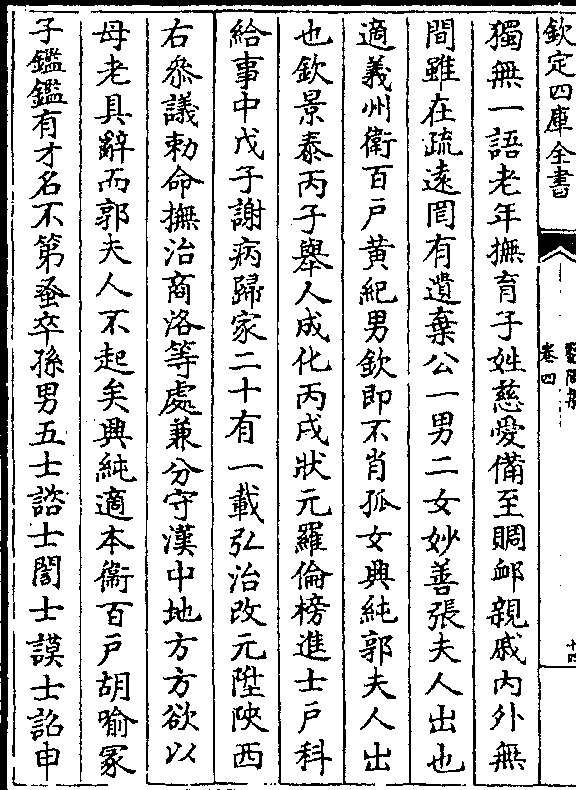 欽定四庫全書
卷四
十四
獨無一語老年撫育子姓慈愛備至賙邺親戚内外無
間雖在疏遠罔有遺棄公一男二女妙善張夫人出也
適義州衛百戸黄紀男欽即不肖孤女興純郭夫人出
也欽景泰丙子舉人成化丙戌狀元羅倫榜進士戸科
給事中戊子謝病歸家二十有一載弘治改元陞陜西
右叅議勅命撫治商洛等處兼分守漢中地方方欲以
母老具辭而郭夫人不起矣興純適本衞百戸胡喻冢
子鑑鑑有才名不第蚤卒孫男五士諮士誾士謨士詔申